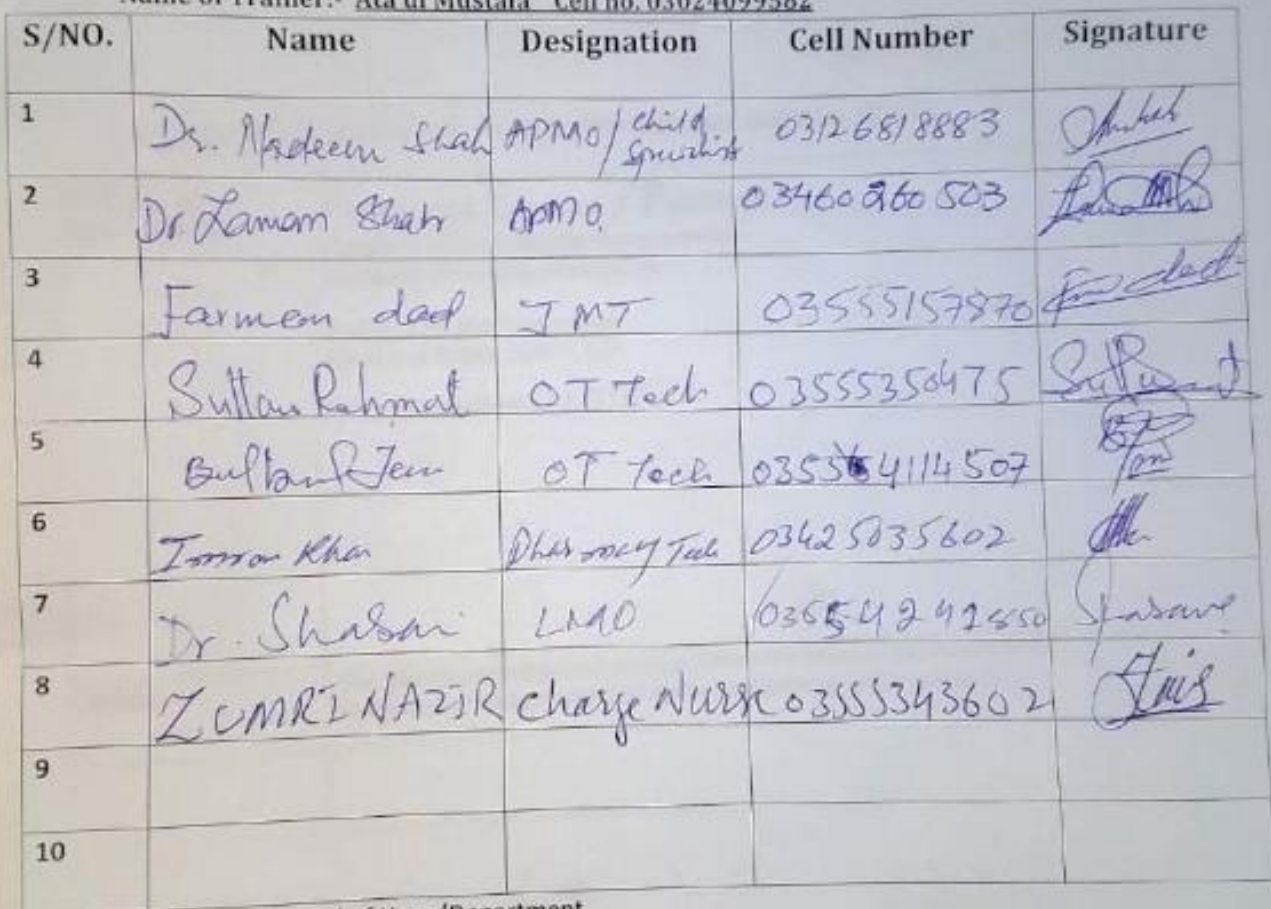 Name of Trainer:- Ata ul Mustafa Cell no. 03024099582
S/NO. Name Designation Cell Number Signature
1 Dr. Nadeem Shah APMO/ Child Specialist 03126818883
2 Dr Zaman Shah APMO. 03460260503
3 Farmen dad JMT 03555157870
4 Sultan Rahmat OT Tech 03555350475
5 OT Tech
6 Imran Khan Pharmacy Tech 03425035602
7 Dr. LMO
8 ZUMRI NAZIR Charge Nurse 03555343602
9
10